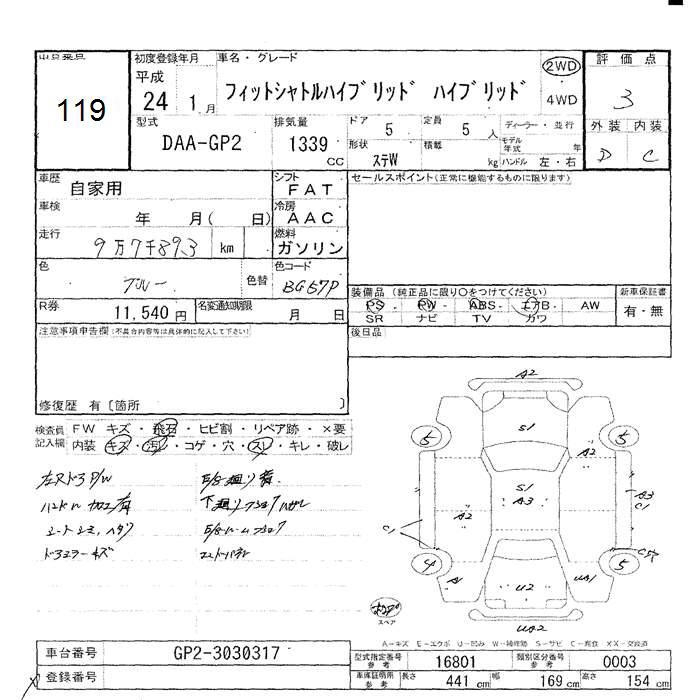 出品番号
119
初度登録年月
平成
24 1 月
車名・グレード
フィットシャトルハイブリッド ハイブリッド
2WD
4WD
評価点
3
外装 内装
D C
型式
DAA-GP2
排気量
1339
CC
ドア
5
定員
5 人
形状
ステW
積載
kg
ディーラー・並行
モデル年式
年
ハンドル 左・右
車歴
自家用
シフト
FAT
車検
年 月( 日)
冷房
AAC
走行
9万7千893 km
燃料
ガソリン
色
ブルー
色替
色コード
BG57P
R券
11,540 円
名変通知期限
月 日
セールスポイント(正常に機能するものに限ります)
装備品(純正品に限り○をつけてください)
PS PW ABS エアB AW
SR ナビ TV カワ
新車保証書
有・無
後日品
注意事項申告欄(不具合内容等は具体的に記入して下さい)
修復歴 有〔箇所 〕
検査員記入欄
FW キズ・飛石・ヒビ割・リペア跡・×要
内装 キズ・汚レ・コゲ・穴・スレ・キレ・破レ
A2
S1
5 5
S1
A3
A2
A3
C1
C1
4 5
A1
U2
UA1
UA2
スペア
A-キズ E-エクボ U-凹み W-補修跡 S-サビ C-腐食 XX-交換済
車台番号
GP2-3030317
登録番号
型式指定番号
参考
16801
類別区分番号
参考
0003
車庫証明用
参考
長さ
441 cm
幅
169 cm
高さ
154 cm